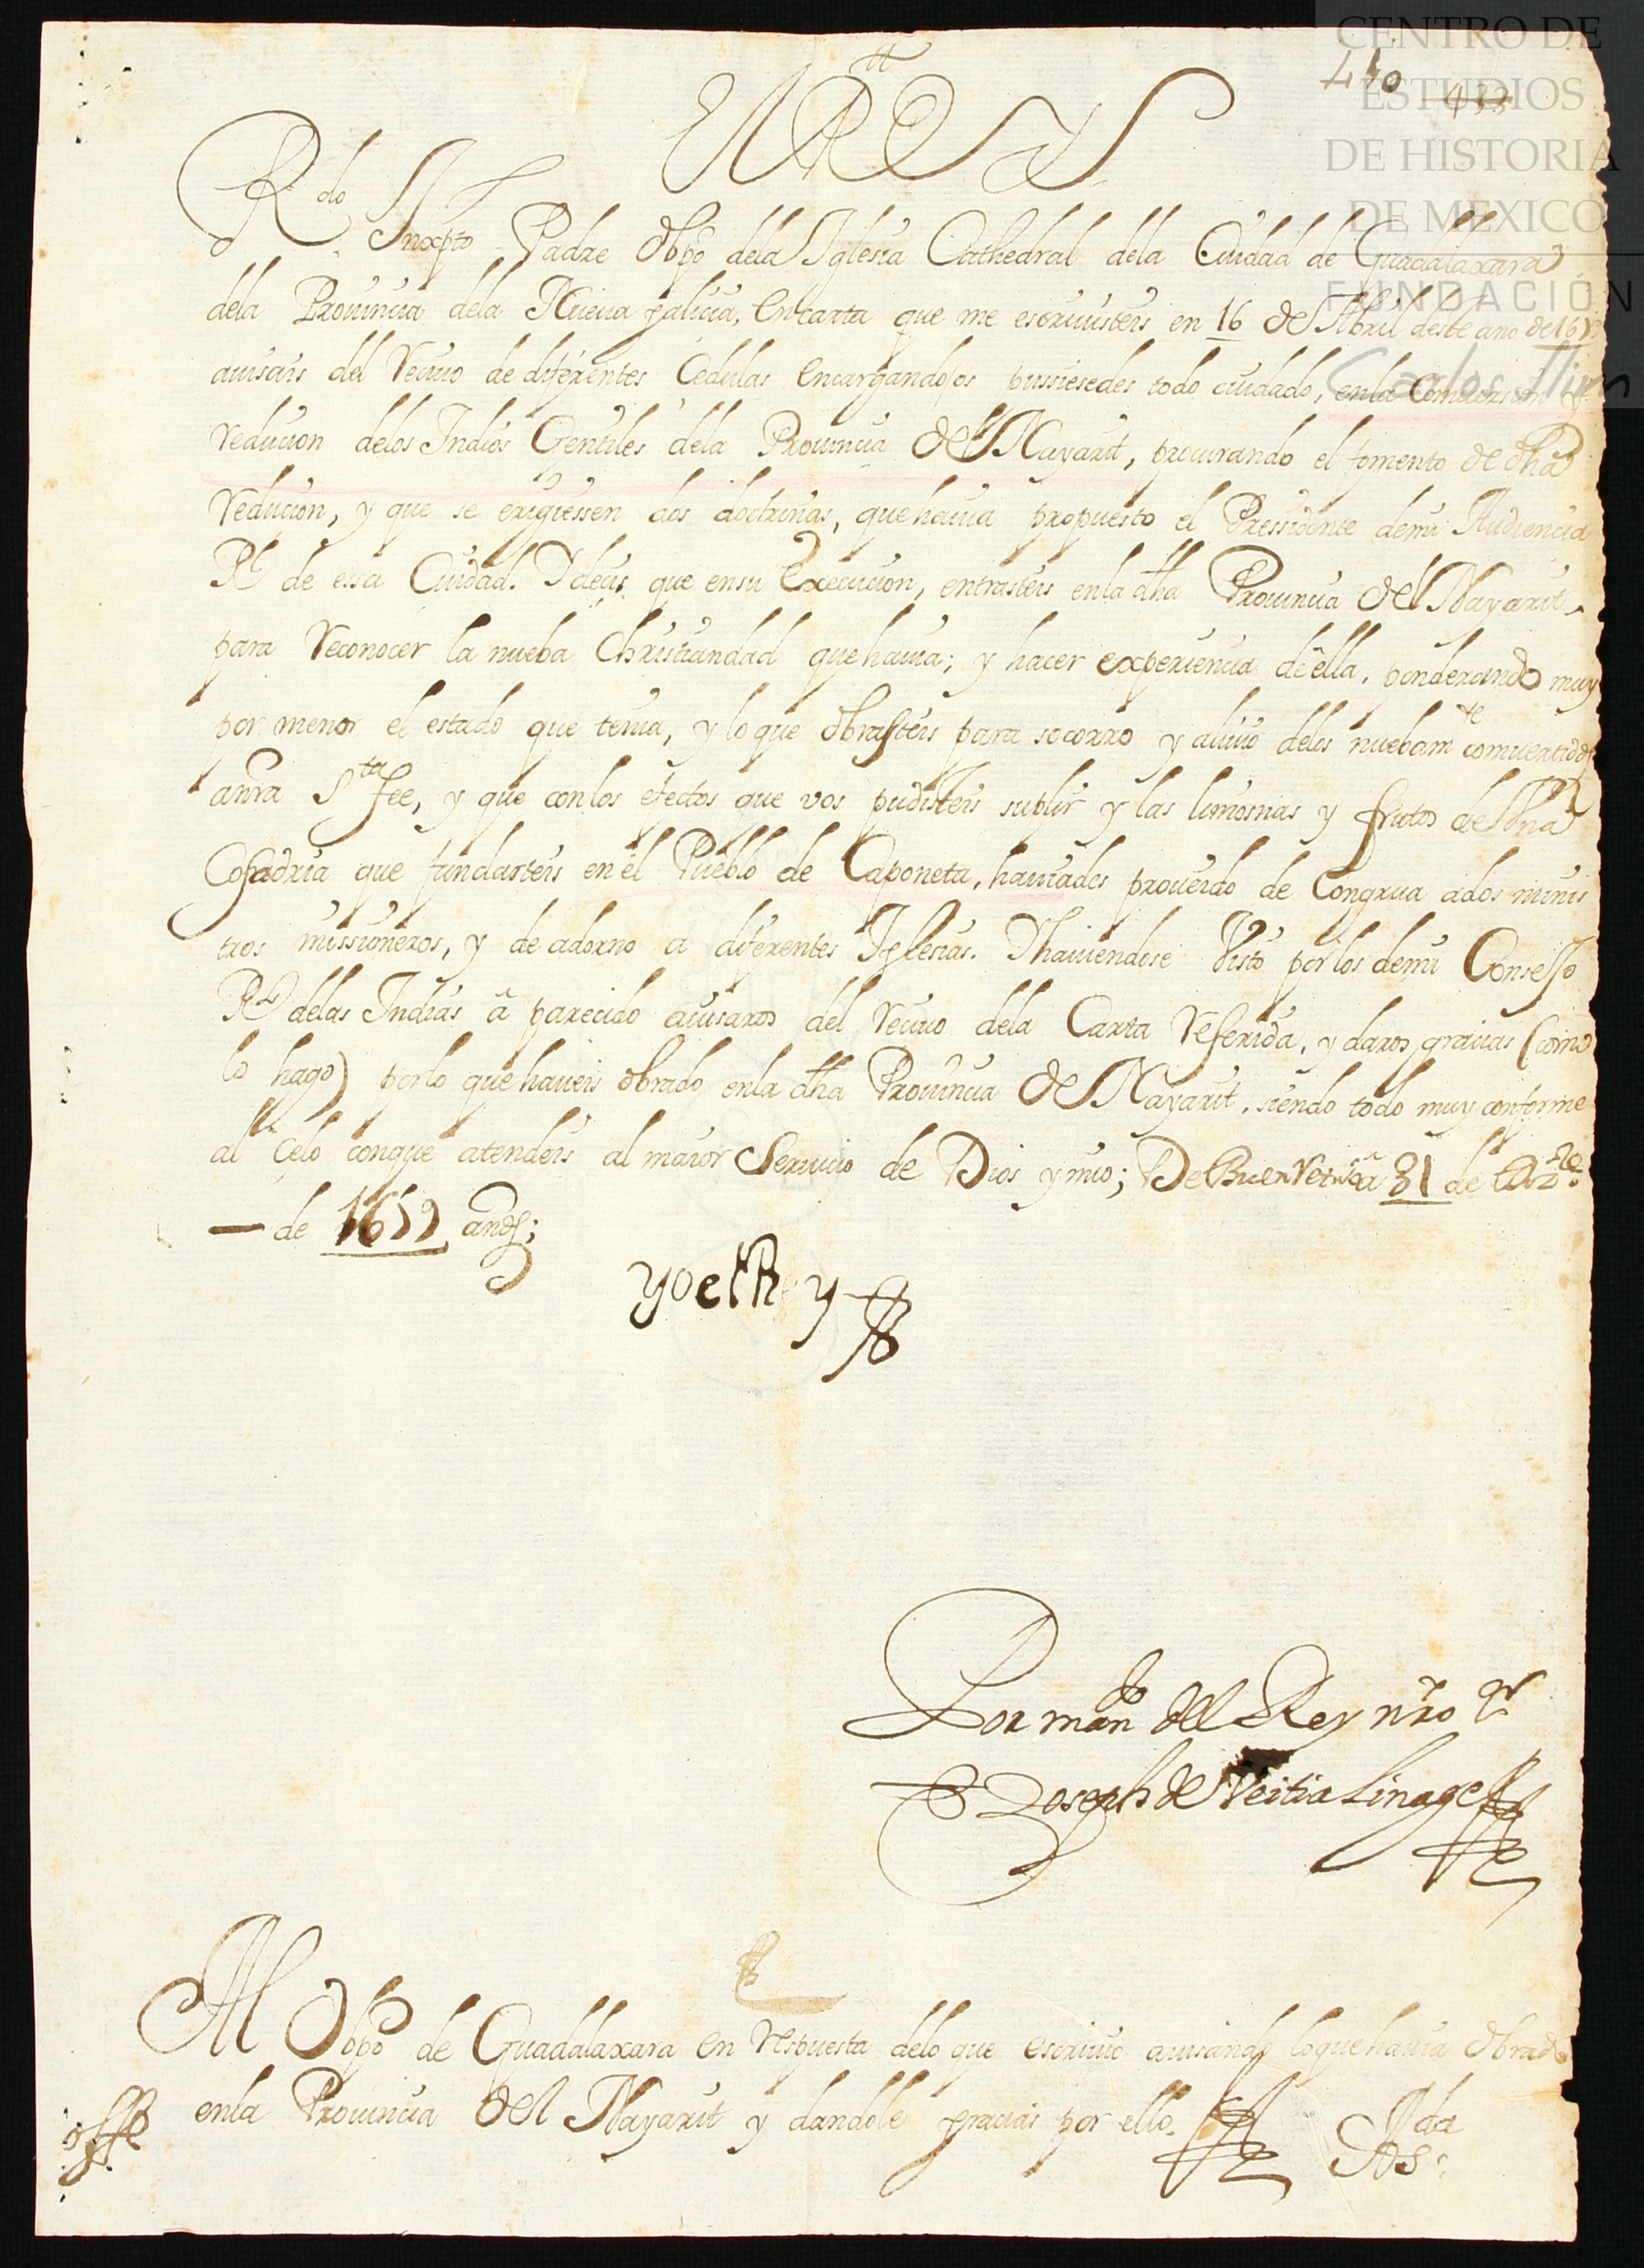 440 433
CENTRO DE
ESTUDIOS
DE HISTORIA
DE MEXICO
FUNDACIÓN
Carlos Slim
El Rey
Rdo Inxpto Padre Obpō dela Iglesia Cathedral dela Ciudad de Guadalaxara
dela Prouincia dela Nueua galicia, En carta que me escriuisteis en 16 de Abril deste año de
auisais del Reciuo de diferentes Cedulas Encargandoos pussiesedes todo cuidado, en la Comuersion
Reducion delos Indios Gentiles dela Prouincia del Nayarit, procurando el fomento de dha
Reducion, y que se erigiessen dos doctrinas, que hauia propuesto el Pressidente demi Audiencia
Rl de essa Ciudad. Y decis que ensu Execucion, entrasteis enla dha Prouincia del Nayarit
para Reconocer la nueba Christiandad que hauia; y hacer experiencia de ella, ponderando muy
por menor el estado que tenia, y lo que obrasteis para socorro y aliuio delos nuebamte comuertidos
a nra Sta fee, y que con los efectos que vos pudisteis suplir y las limosnas y frutos de Vna
Cofadria que fundasteis en el Pueblo de Caponeta, hauiades proueido de Congrua ados minis
tros missioneros, y de adorno a diferentes Iglesias. Y hauiendose Visto por los demi Consejo
Rl delas Indias â parecido auisaros del Reciuo dela Carta Referida, y daros gracias (como
lo hago) por lo que haueis obrado enla dha Prouincia de Nayarit, siendo todo muy conforme
al Celo conque atendeis al maior Seruicio de Dios y mio; De Buen Retiro â 31 de Dize
de 1679 años;
yo el Rey
Por mando del Rey nro sr
Joseph de Veitia Linage
Al Obpō de Guadalaxara En Respuesta delo que Escriuio auisando lo que hauia Obrado
enla Prouincia del Nayarit y dandole gracias por ello.